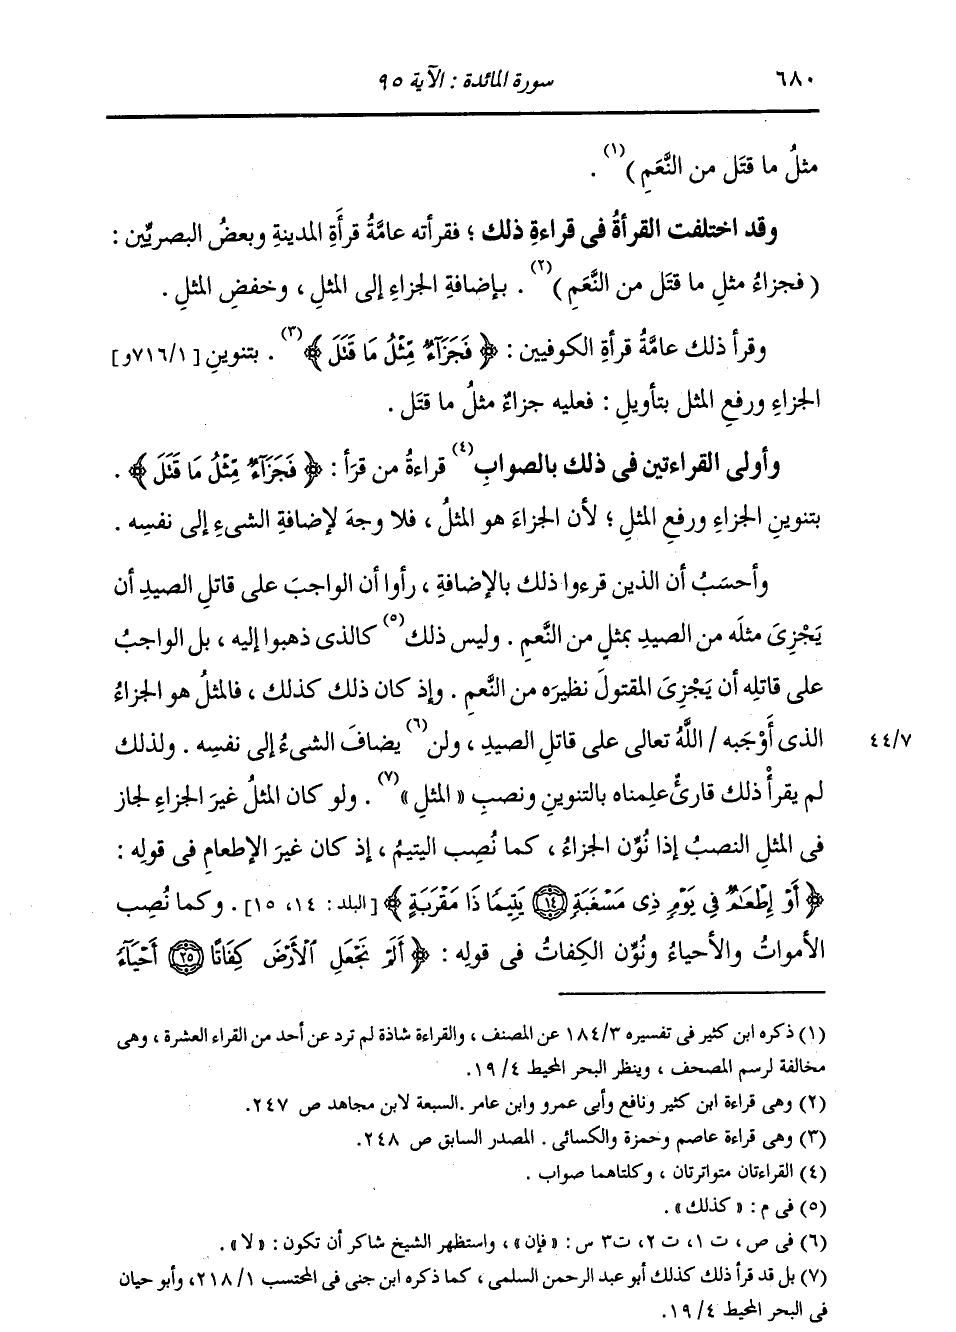 ٦٨٠ سورة المائدة : الآية ٩٥
مثلُ ما قتَل من النَّعَمِ)(١) .
وقد اختلفت القرأةُ فى قراءةِ ذلك ؛ فقرأته عامَّةُ قرأَةِ المدينةِ وبعضُ البصريِّين :
( فجزاءُ مثلِ ما قتَل من النَّعَمِ )(٢) . بإضافةِ الجزاءِ إلى المثلِ ، وخفضِ المثلِ .
وقرأ ذلك عامَّةُ قرأةِ الكوفيين : ﴿ فَجَزَآءٌ مِّثْلُ مَا قَتَلَ ﴾(٣) . بتنوينِ [٧١٦/١و]
الجزاءِ ورفعِ المثلِ بتأويلِ : فعليه جزاءٌ مثلُ ما قتَل .
وأولى القراءتين فى ذلك بالصوابِ(٤) قراءةُ من قرَأ : ﴿ فَجَزَآءٌ مِّثْلُ مَا قَتَلَ ﴾ .
بتنوينِ الجزاءِ ورفعِ المثلِ ؛ لأن الجزاءَ هو المثلُ ، فلا وجهَ لإضافةِ الشىءِ إلى نفسِه .
وأحسَبُ أن الذين قرءوا ذلك بالإضافةِ ، رأوا أن الواجبَ على قاتلِ الصيدِ أن
يَجْزِىَ مثلَه من الصيدِ بمثلٍ من النَّعمِ . وليس ذلك(٥) كالذى ذهبوا إليه ، بل الواجبُ
على قاتلِه أن يَجْزِىَ المقتولَ نظيرَه من النعمِ . وإذ كان ذلك كذلك ، فالمثلُ هو الجزاءُ
الذى أَوْجَبه / اللَّهُ تعالى على قاتلِ الصيدِ ، ولن(٦) يضافَ الشىءُ إلى نفسِه . ولذلك ٤٤/٧
لم يقرأْ ذلك قارئٌ علِمناه بالتنوينِ ونصبِ « المثلِ »(٧) . ولو كان المثلُ غيرَ الجزاءِ لجاز
فى المثلِ النصبُ إذا نُوِّن الجزاءُ ، كما نُصِب اليتيمُ ، إذ كان غيرَ الإطعامِ فى قولِه :
﴿ أَوْ إِطْعَٰمٌ فِى يَوْمٍ ذِى مَسْغَبَةٍ ﴿١٤﴾ يَتِيمًا ذَا مَقْرَبَةٍ ﴾ [البلد : ١٤، ١٥] . وكما نُصِب
الأمواتُ والأحياءُ ونُوِّن الكِفاتُ فى قولِه : ﴿ أَلَمْ نَجْعَلِ ٱلْأَرْضَ كِفَاتًا ﴿٢٥﴾ أَحْيَآءً
(١) ذكره ابن كثير فى تفسيره ١٨٤/٣ عن المصنف ، والقراءة شاذة لم ترد عن أحد من القراء العشرة ، وهى
مخالفة لرسم المصحف ، وينظر البحر المحيط ١٩/٤.
(٢) وهى قراءة ابن كثير ونافع وأبى عمرو وابن عامر .السبعة لابن مجاهد ص ٢٤٧.
(٣) وهى قراءة عاصم وحمزة والكسائى . المصدر السابق ص ٢٤٨.
(٤) القراءتان متواترتان ، وكلتاهما صواب .
(٥) فى م : « كذلك » .
(٦) فى ص ، ت ١، ت ٢، ت٣ س : « فإن » ، واستظهر الشيخ شاكر أن تكون : « لا » .
(٧) بل قد قرأ ذلك كذلك أبو عبد الرحمن السلمى ، كما ذكره ابن جنى فى المحتسب ٢١٨/١، وأبو حيان
فى البحر المحيط ١٩/٤.